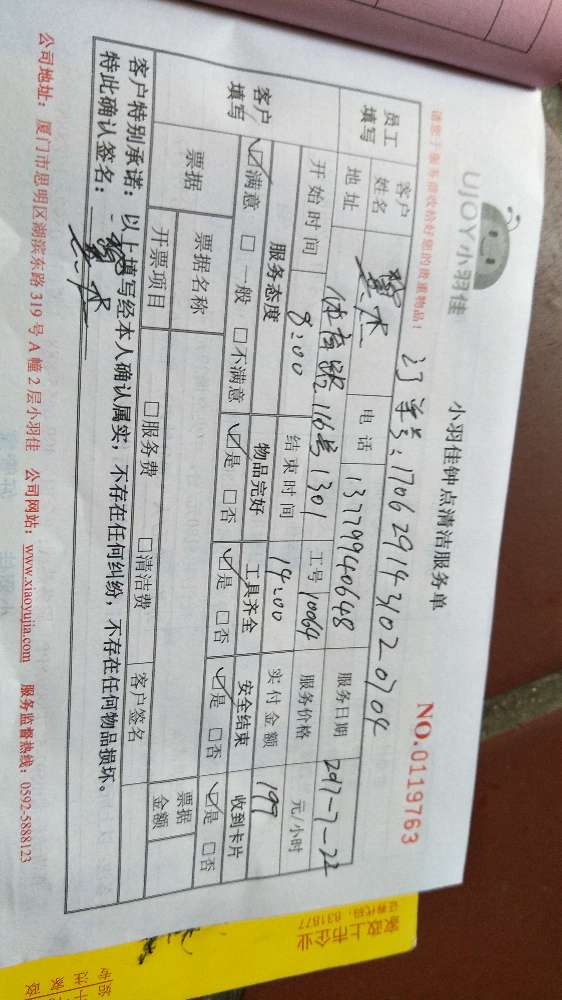 UJOY小羽佳
小羽佳钟点清洁服务单
NO.0119763
请您于服务前收拾好您的贵重物品！
订单号：1706291431020704
员工填写
客户姓名
电话 13779940648
服务日期 2017-7-22
地址 体育路116号1301
工号 10064
服务价格 元/小时
开始时间 8:00
结束时间 14:00
实付金额 199
客户填写
服务态度 物品完好 工具齐全 安全结束 收到卡片
☑满意 □一般 □不满意 ☑是 □否 ☑是 □否 ☑是 □否 ☑是 □否
票据
票据名称
票据金额
开票项目 □服务费 □清洁费 客户签名
客户特别承诺：以上填写经本人确认属实，不存在任何纠纷，不存在任何物品损坏。
特此确认签名：
公司地址：厦门市思明区湖滨东路319号A幢2层小羽佳 公司网站：www.xiaoyujia.com 服务监督热线：0592-5888123
家政上市企业
证券代码：831877